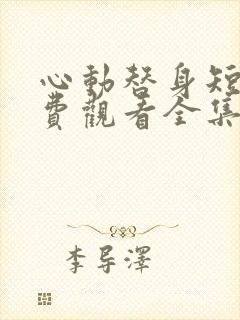 心動替身短
費觀看全集
李导澤